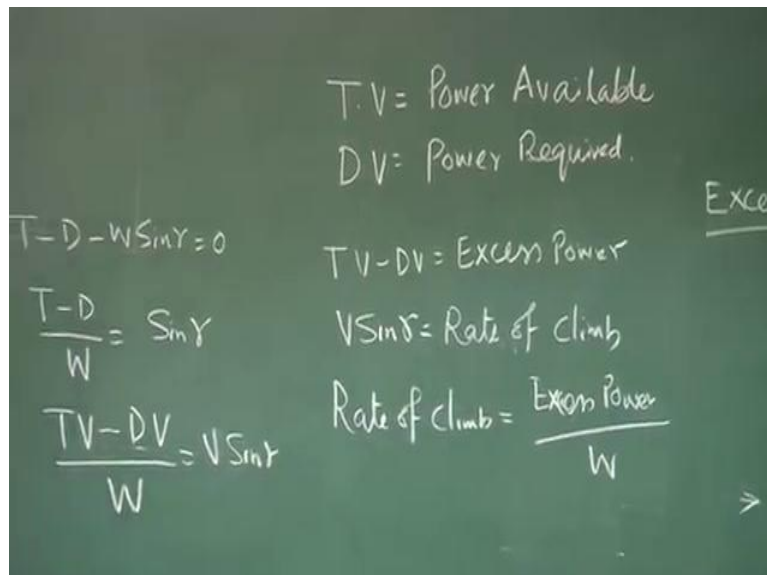 T-D-WSinγ=0
T-D
W
= Sinγ
TV-DV
W
= VSinγ
T.V= Power Available
DV= Power Required.
TV-DV= Excess Power
VSinγ= Rate of Climb
Rate of Climb=
Excess Power
W
Exce
>